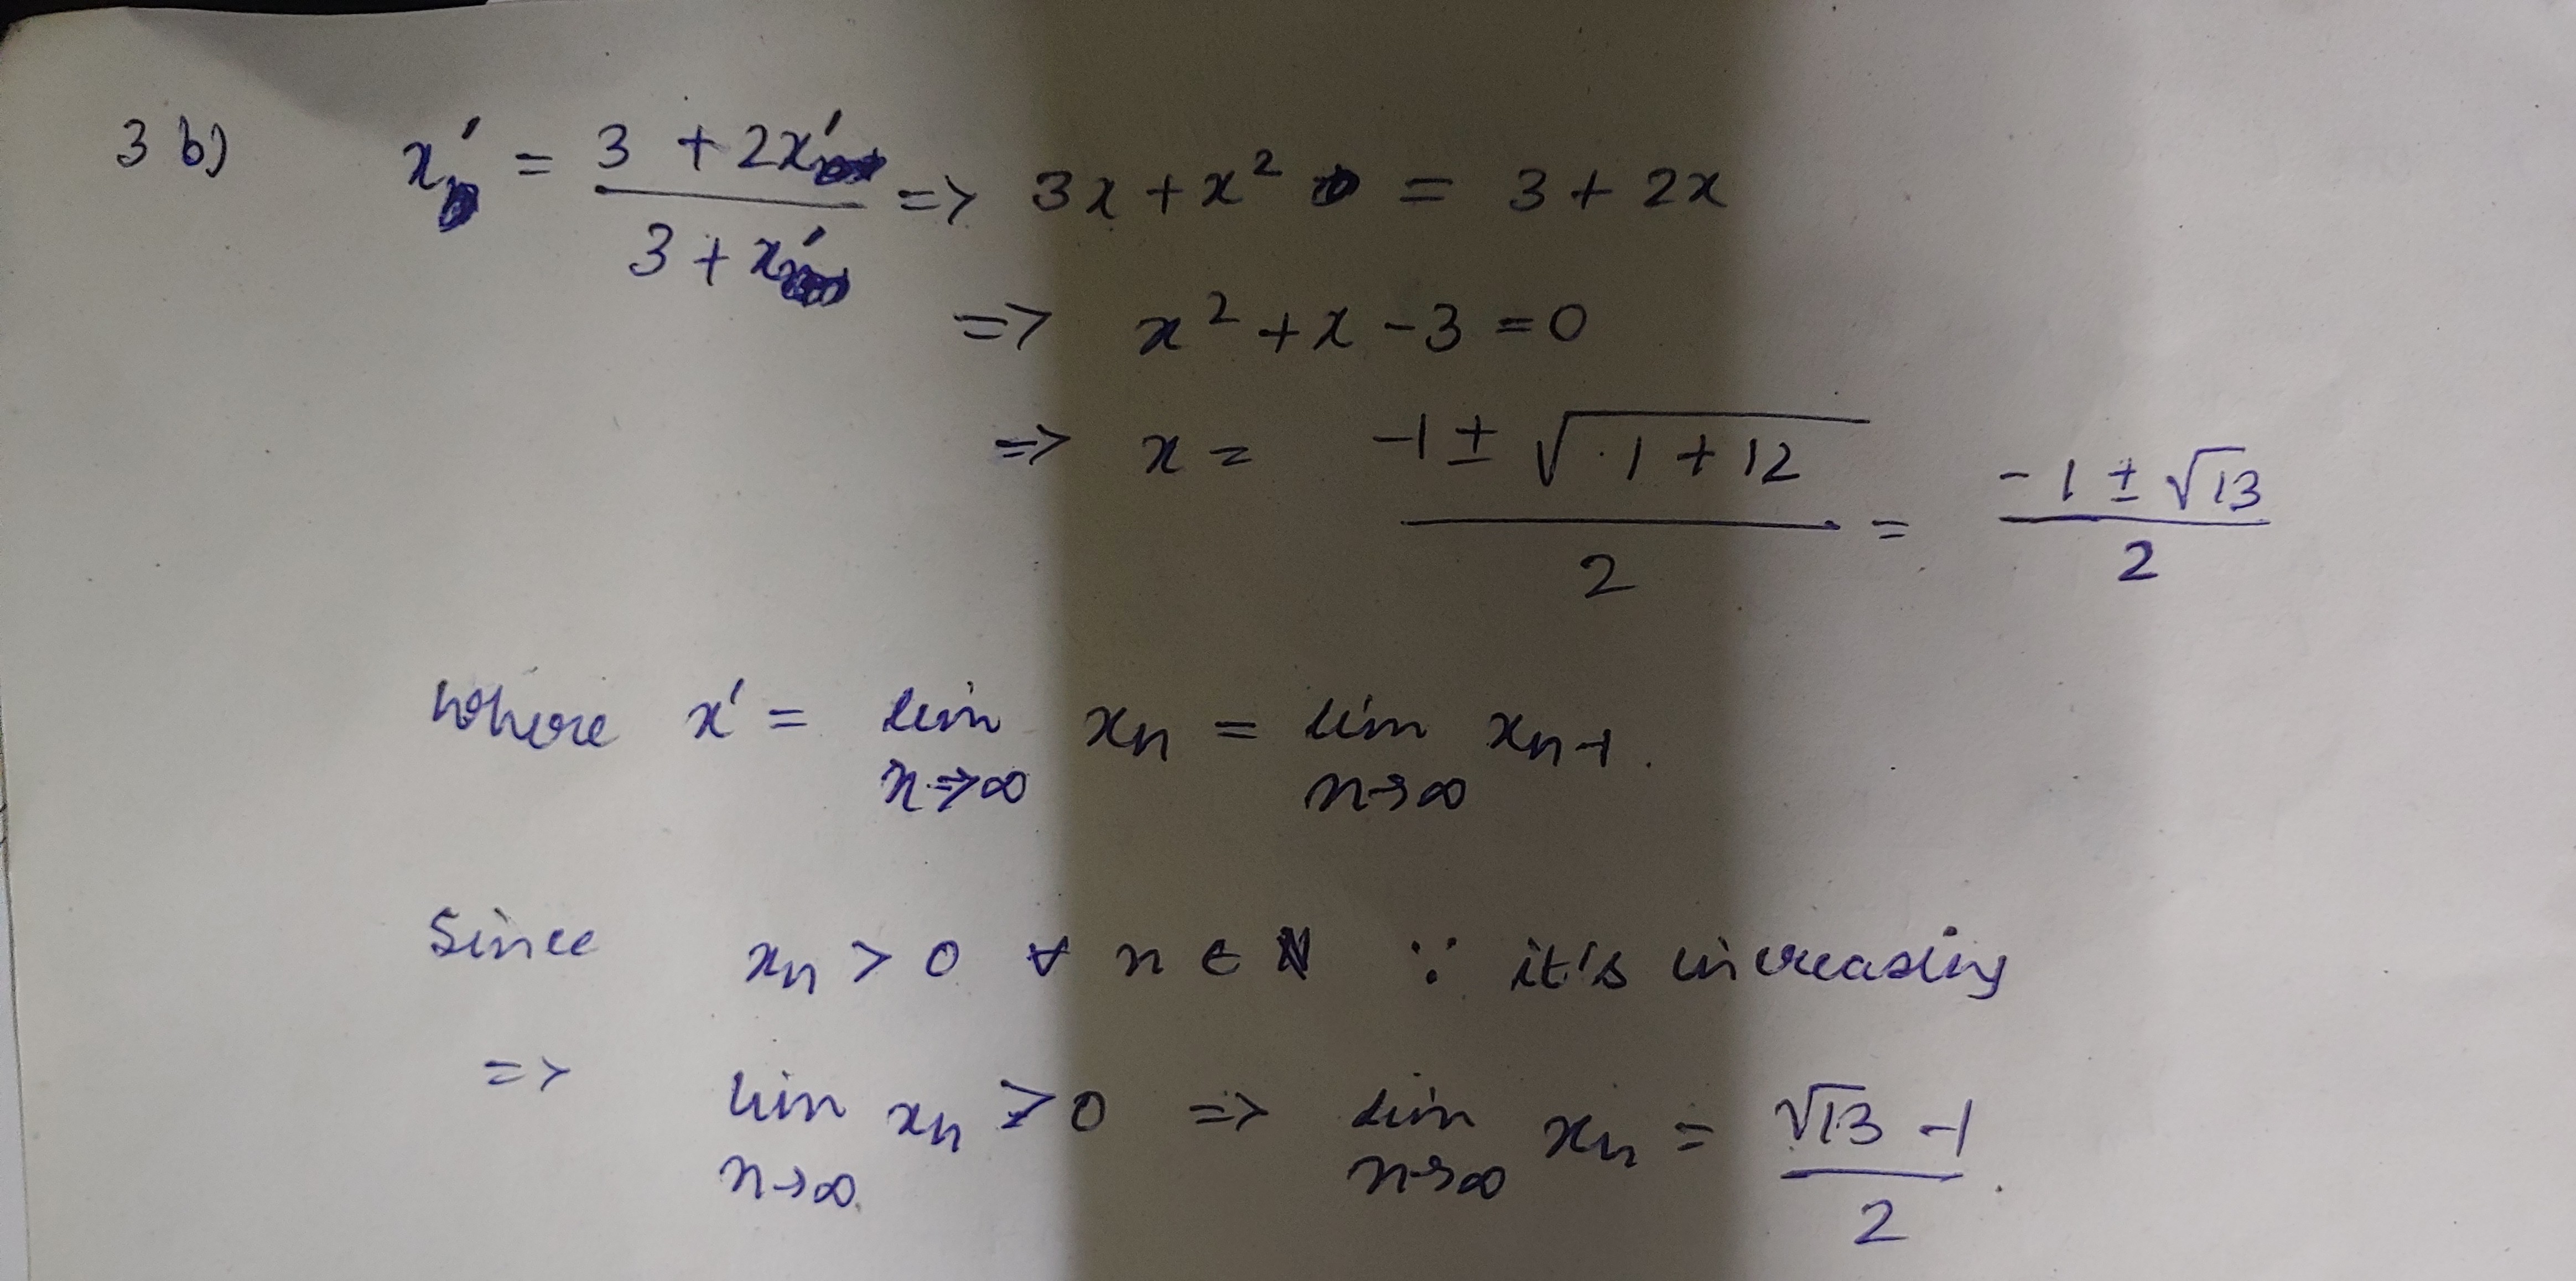 3 b) x' = (3 + 2x') / (3 + x') => 3x + x² = 3 + 2x
=> x² + x - 3 = 0
=> x = (-1 ± √(1 + 12)) / 2 = (-1 ± √13) / 2
where x' = lim n→∞ xₙ = lim n→∞ xₙ₋₁.
Since xₙ > 0 ∀ n ∈ ℕ ∵ it's increasing
=> lim n→∞ xₙ ≥ 0 => lim n→∞ xₙ = (√13 - 1) / 2.